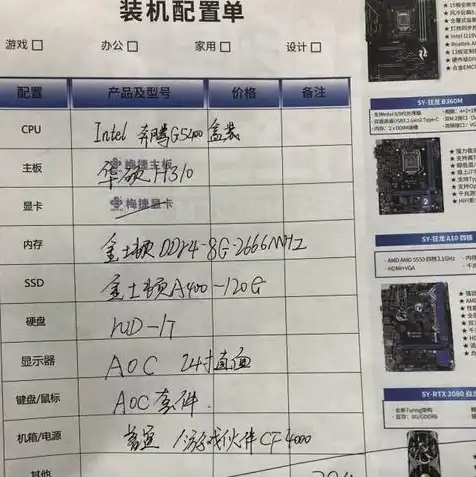 装机配置单
游戏 办公 家用 设计
配置 产品及型号 价格 备注
CPU Intel 奔腾G5400 盒装
主板 梅捷主板 华硕 H310
显卡 梅捷显卡
内存 金士顿 DDR4-8G-2666MHZ
SSD 金士顿A400-120G
硬盘 WD-1T
显示器 AOC 24寸直面
键盘/鼠标 AOC 套件.
机箱/电源 游戏伙伴CF4000
其他
SY-狂龙 B360M
SY-狂龙 A10 四核
· AMD AMD 5550 四核3.1GHz
· HDMI+VGA
SY-RTX 2080
· 全新Turing架构
· 显存：8G/GDDR6